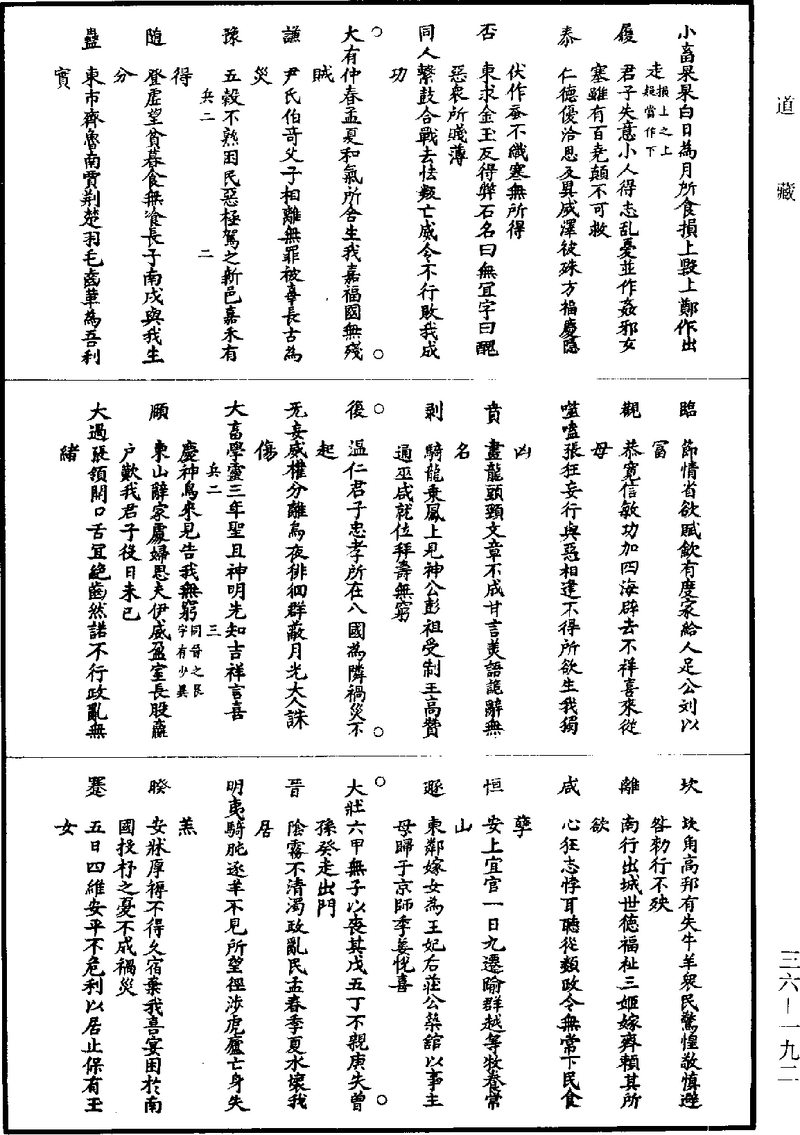 道藏
小畜杲杲白日為月所食損上毀上鄭作出
走損上之上疑當作下
履　君子失意小人得志乱憂並作姦邪充
塞雖有百堯顛不可救
泰　仁德優洽恩及異域澤彼殊方福慶隱
伏作蚕不織寒無所得
否　東求金玉反得弊石名曰無宜字曰醜
惡衆所賤薄
同人繫鼓合戰士怯叛亡威令不行敗我成
功
大有仲春孟夏和氣所舍生我嘉福國無殘
賊
謙　尹氏伯奇父子相離無罪被辜長古為
災
豫　五穀不熟困民惡極駕之新邑嘉禾有
得
兵二　二
隨　登虛望貧暮食無飡長子南戍與我生
分
蠱　東市齊魯南賈荆楚羽毛齒革為吾利
寶
臨　節情省欲賦斂有度家給人足公刘以
富
觀　恭寛信敏功加四海辟去不祥喜來從
母
噬嗑張狂妄行與惡相逢不得所欲生我獨
凶
賁　畫龍頭頸文章不成甘言美語詭辭無
名
剥　騎龍乘鳳上見神公彭祖受制王高贊
通巫咸就位拜壽無窮
復　温仁君子忠孝所在八國為隣禍災不
起
无妄威權分離烏夜徘徊群蔽月光大人誅
傷
大畜學靈三年聖且神明先知吉祥言喜
兵二　三
慶神鳥來見告我無窮同晉之艮字有少異
頤　東山辭家處婦思夫伊威盈室長股羸
户歎我君子役日未已
大過張領開口舌宜絶齒然諾不行政亂無
緒
坎　坎角高邦有失牛羊衆民驚惶敬慎避
咎勑行不殃
離　南行出城世德福祉三姬嫁齊賴其所
欲
咸　心狂志悖耳聽從類政令無常下民食
孽
恒　安上宜官一日九遷踰群越等牧養常
山
遯　東鄰嫁女為王妃右莊公築舘以事主
母歸于京師季姜悅喜
大壯六甲無子以喪其戊五丁不親庚失曾
孫癸走出門
晉　陰霧不清濁政亂民孟春季夏水壞我
居
明夷騎肫逐羊不見所望徑涉虎廬亡身失
羔
睽　安牀厚褥不得久宿棄我喜宴困於南
國投杼之憂不成禍災
蹇　五日四維安平不危利以居止保有玉
女
三六－一九二